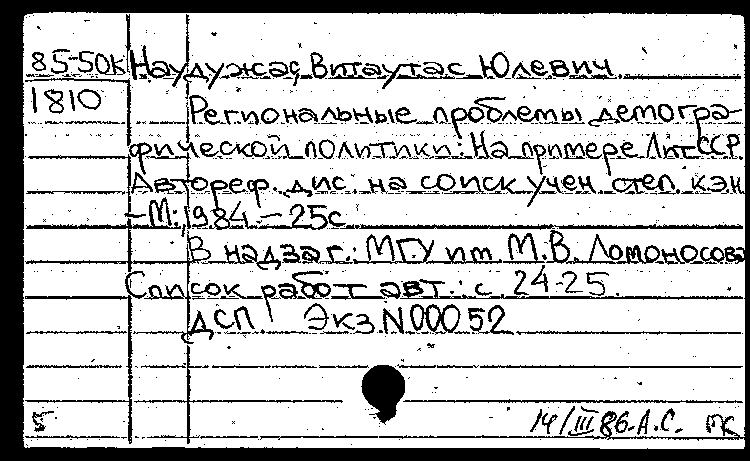 85-50к Наудужас, Витаутас Юлевич.
1810 Региональные проблемы демогра-
фической политики: На примере ЛитССР
Автореф. дис. на соиск учен степ. кэн
-М.,1984.-25с
В надзаг.: МГУ им М.В. Ломоносова
Список работ авт.: с. 24-25.
ДСП. Экз.N00052
5 14/III 86.А.С. ПК